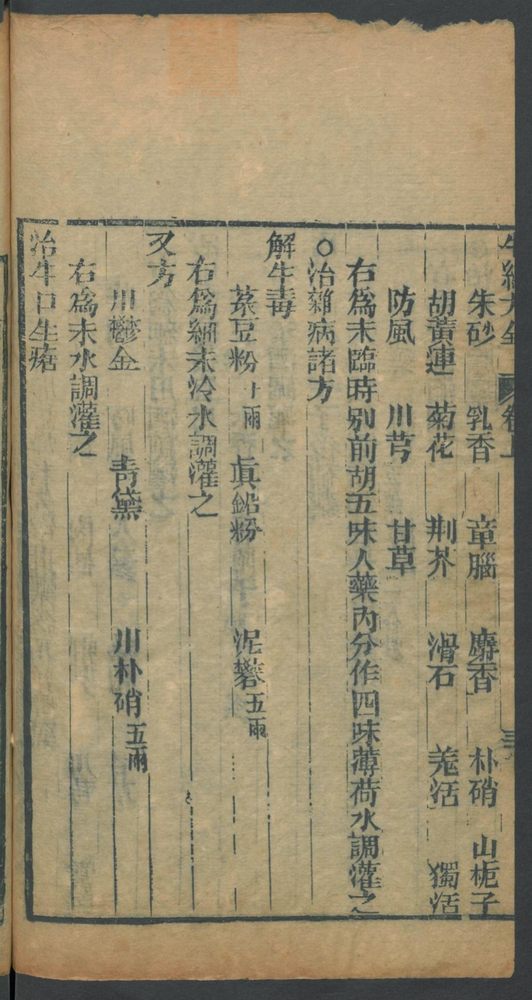 牛經大全 卷上 三
朱砂 乳香 童腦 麝香 朴硝 山梔子
胡黃連 菊花 荆芥 滑石 羗活 獨活
防風 川芎 甘草
右爲末臨時别前胡五味人藥內分作四味薄荷水調灌之
○治雜病諸方
解牛毒
菉豆粉十兩 眞鉛粉 泥礬五兩
右爲細末冷水調灌之
又方
川鬱金 青黛 川朴硝五兩
右爲末水調灌之
治牛口生瘡